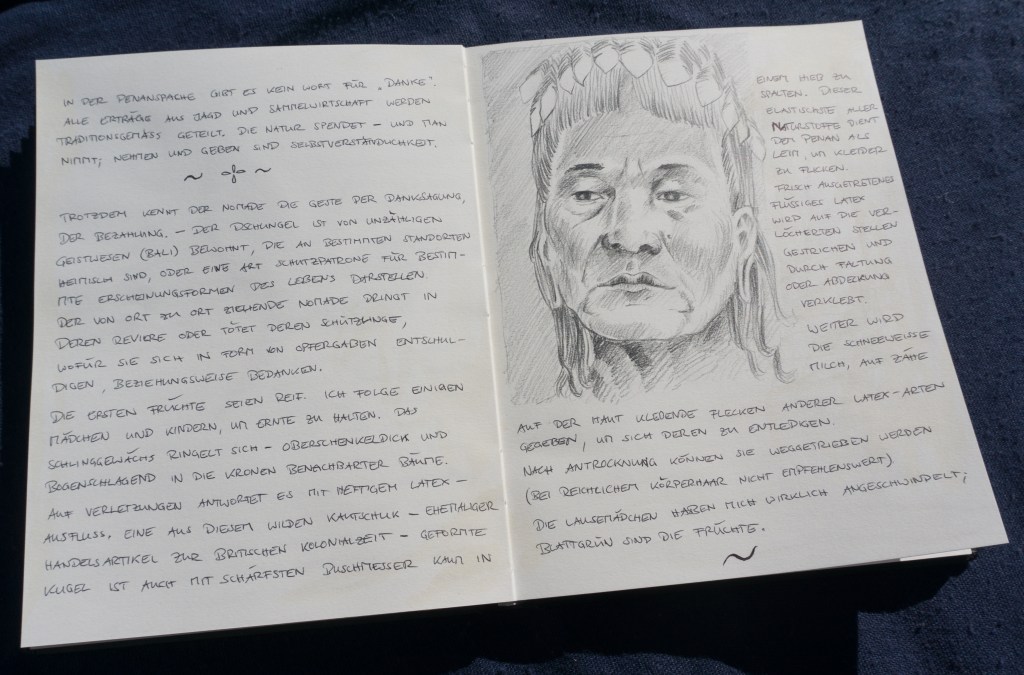 IN DER PENANSPACHE GIBT ES KEIN WORT FÜR „DANKE".
ALLE ERTRÄGE AUS JAGD UND SAMMELWIRTSCHAFT WERDEN
TRADITIONSGEMÄSS GETEILT. DIE NATUR SPENDET – UND MAN
NIMMT; NEHMEN UND GEBEN SIND SELBSTVERSTÄNDLICHKEIT.
TROTZDEM KENNT DER NOMADE DIE GESTE DER DANKSAGUNG,
DER BEZAHLUNG. – DER DSCHUNGEL IST VON UNZÄHLIGEN
GEISTWESEN (BALI) BEWOHNT, DIE AN BESTIMMTEN STANDORTEN
HEIMISCH SIND, ODER EINE ART SCHUTZPATRONE FÜR BESTIM-
MTE ERSCHEINUNGSFORMEN DES LEBENS DARSTELLEN.
DER VON ORT ZU ORT ZIEHENDE NOMADE DRINGT IN
DEREN REVIERE ODER TÖTET DEREN SCHÜTZLINGE,
WOFÜR SIE SICH IN FORM VON OPFERGABEN ENTSCHUL-
DIGEN, BEZIEHUNGSWEISE BEDANKEN.
DIE ERSTEN FRÜCHTE SEIEN REIF. ICH FOLGE EINIGEN
MÄDCHEN UND KINDERN, UM ERNTE ZU HALTEN. DAS
SCHLINGGEWÄCHS RINGELT SICH – OBERSCHENKELDICK UND
BOGENSCHLAGEND IN DIE KRONEN BENACHBARTER BÄUME.
AUF VERLETZUNGEN ANTWORTET ES MIT HEFTIGEM LATEX-
AUSFLUSS. EINE AUS DIESEM WILDEN KAUTSCHUK – EHEMALIGER
HANDELSARTIKEL ZUR BRITISCHEN KOLONIALZEIT – GEFORMTE
KUGEL IST AUCH MIT SCHÄRFSTEN BUSCHMESSER KAUM IN
EINEM HIEB ZU
SPALTEN. DIESER
ELASTISCHSTE ALLER
NATURSTOFFE DIENT
DEM PENAN ALS
LEIM, UM KLEIDER
ZU FLICKEN.
FRISCH AUSGETRETENES
FLÜSSIGES LATEX
WIRD AUF DIE VER-
LÖCHERTEN STELLEN
GESTRICHEN UND
DURCH FALTUNG
ODER ABDECKUNG
VERKLEBT.
WEITER WIRD
DIE SCHNEEWEISSE
MILCH, AUF ZÄHE
AUF DER HAUT KLEBENDE FLECKEN ANDERER LATEX-ARTEN
GEGEBEN, UM SICH DEREN ZU ENTLEDIGEN.
NACH ANTROCKNUNG KÖNNEN SIE WEGGETRIEBEN WERDEN
(BEI REICHLICHEM KÖRPERHAAR NICHT EMPFEHLENSWERT).
DIE LAUSEMÄDCHEN HABEN MICH WIRKLICH ANGESCHWINDELT;
BLATTGRÜN SIND DIE FRÜCHTE.